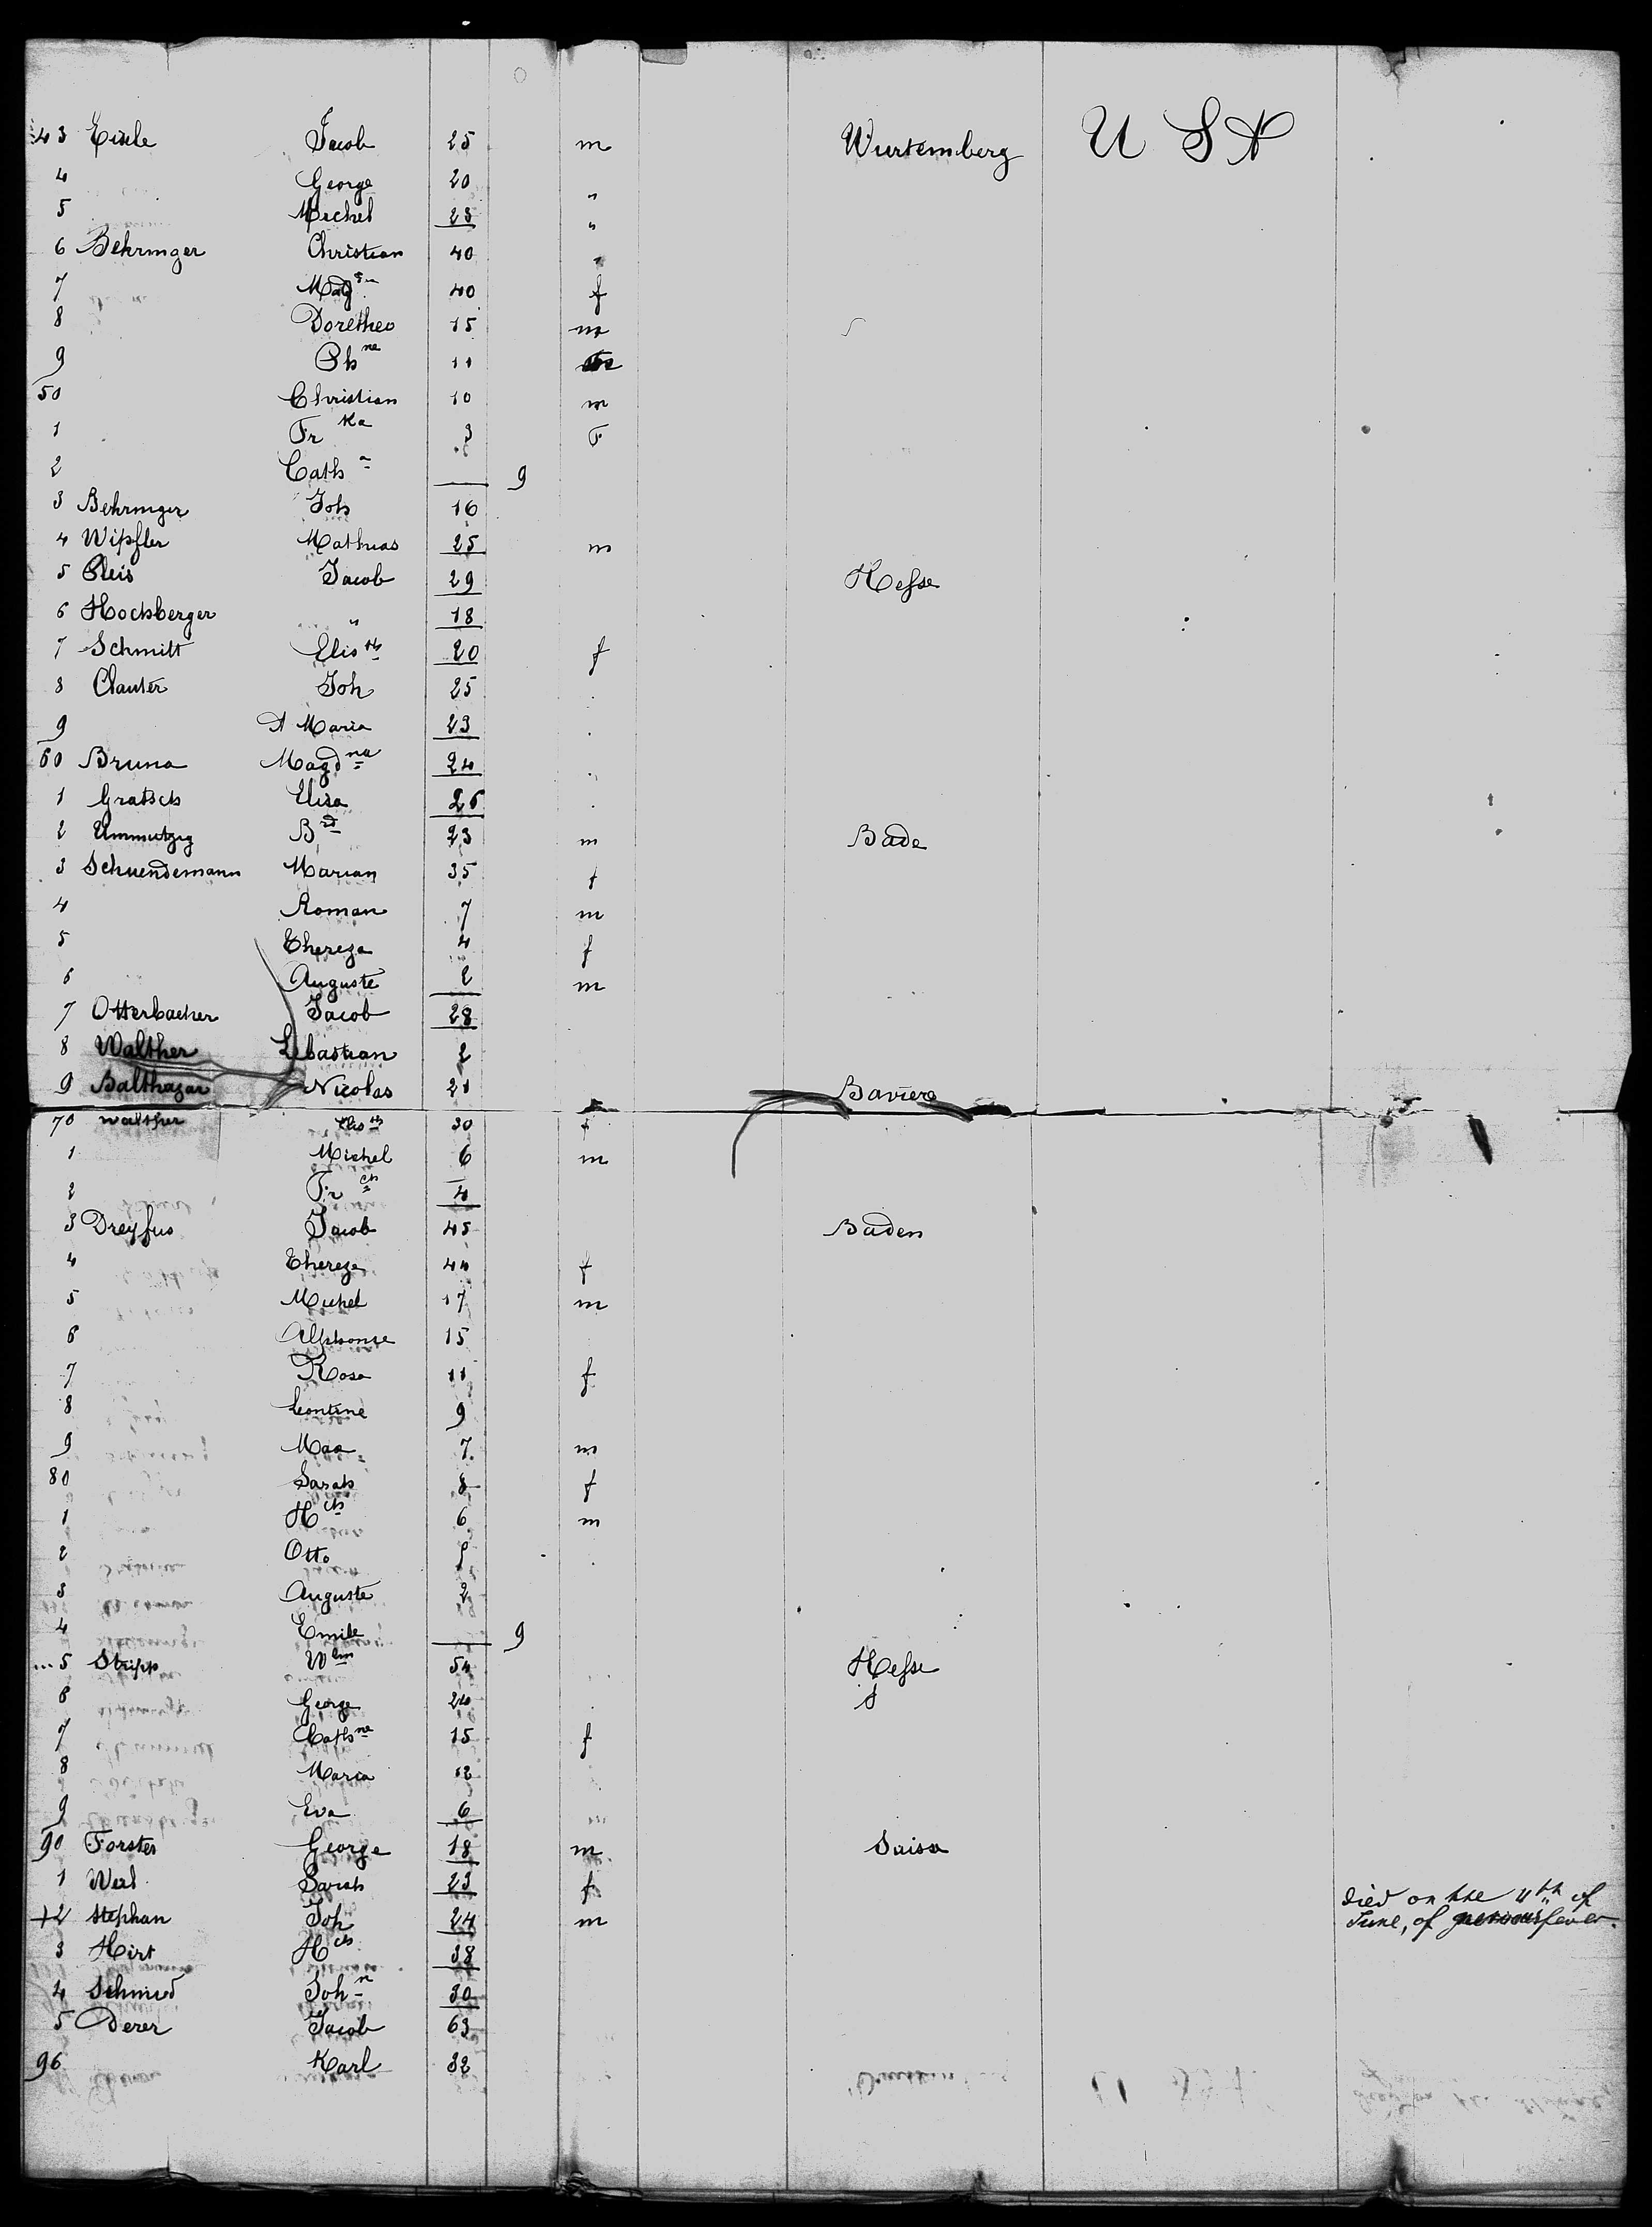 43 Eisele Jacob 25 m Wurtemberg U S A
4 George 20 "
5 Michel 23 "
6 Behringer Christian 40 "
7 Mag 40 f
8 Doretheo 15 m
9 11
50 Christian 10 m
1 Fr ka 3 F
2 Cath 9
3 Behringer Joh 16
4 Wipfler Mathias 25 m
5 Jacob 29 Hesse
6 Hochberger " 18
7 Schmitt Elis th 20 f
8 Clauter Joh 25
9 A Maria 23
60 Bruna Magd na 24
1 Gratsch Elisa 26
2 B 23 m Bade
3 Schuendemann Marian 35 f
4 Roman 7 m
5 Thereza 4 f
6 Auguste 2 m
7 Otterbacher Jacob 28
8 Walther Sebastian 2
9 Balthazar Nicolas 21 Baviere
70 Walther Elis th 30 f
1 Michel 6 m
2 Fr ch 4
3 Dreyfus Jacob 45 Baden
4 Thereze 44 f
5 Michel 17 m
6 Alphonse 15
7 Rosa 11 f
8 Leontine 9
9 Max 7 m
80 Sarah 8 f
1 H ch 6 m
2 Otto
3 Auguste 2
4 Emile 9
5 Stripp W lm 54 Hesse
6 George 24
7 Cath ne 15 f
8 Maria 12
9 Eva 6
90 Forster George 18 m Suisse
1 Weil Sarah 23 f died on the 4th of
+2 Stephan Joh 24 m June, of fever.
3 Hirt H ch 38
4 Schmied Joh n 30
5 Derer Jacob 63
96 Karl 32